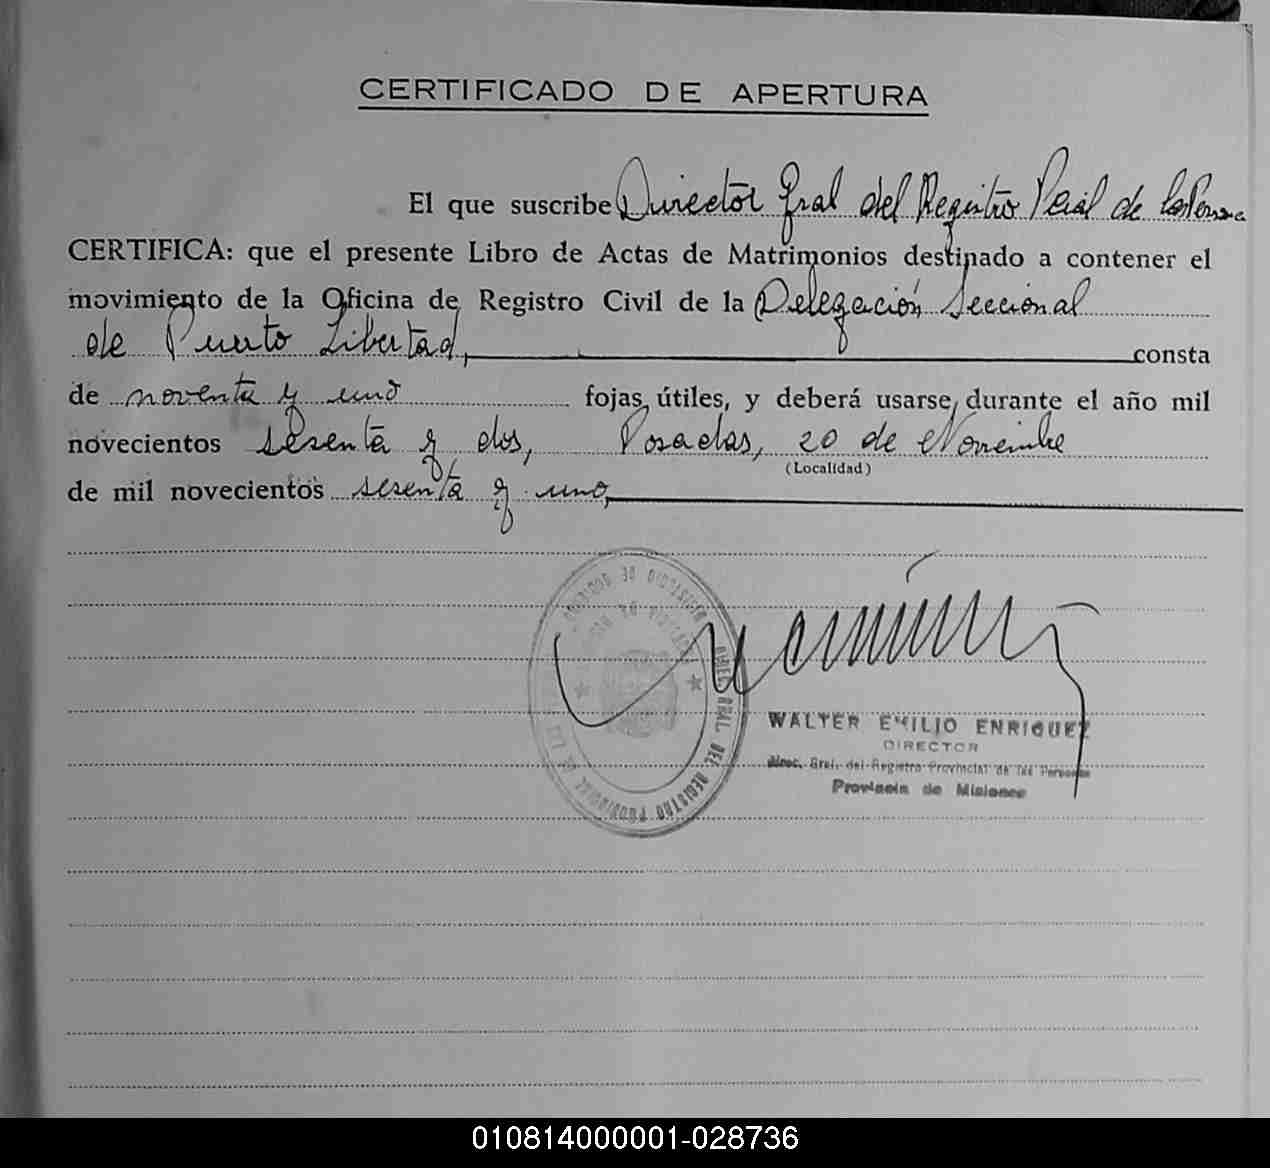 CERTIFICADO DE APERTURA
El que suscribe Director Gral del Registro Pcial de las Personas
CERTIFICA: que el presente Libro de Actas de Matrimonios destinado a contener el
movimiento de la Oficina de Registro Civil de la Delegación Seccional
de Puerto Libertad, consta
de noventa y uno fojas útiles, y deberá usarse durante el año mil
novecientos sesenta y dos, Posadas, 20 de Noviembre
(Localidad)
de mil novecientos sesenta y uno,
WALTER EMILIO ENRIQUEZ
DIRECTOR
Direc. Gral. del Registro Provincial de las Personas
Provincia de Misiones
DEL REGISTRO PROVINCIAL DE LAS
010814000001-028736